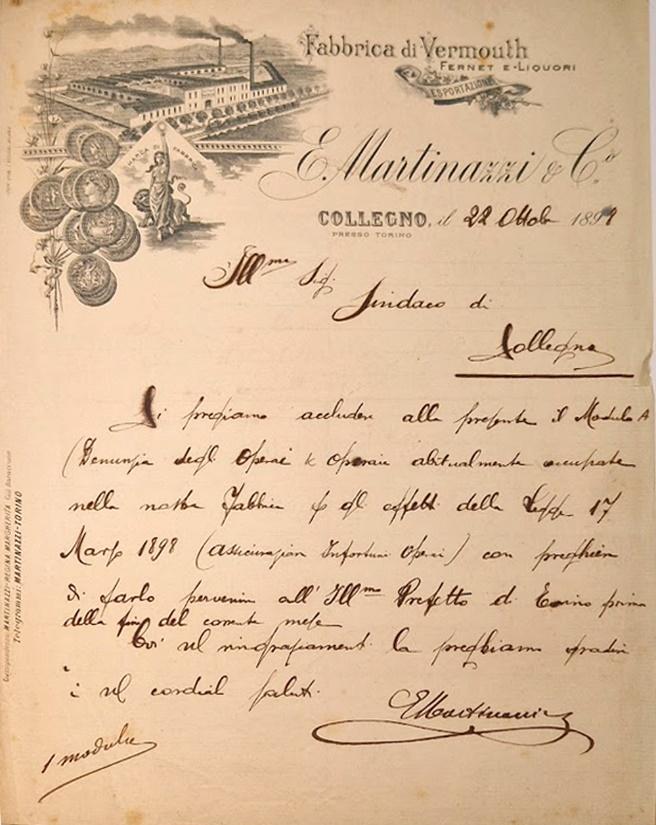 Fabbrica di Vermouth
FERNET E LIQUORI
ESPORTAZIONE
MARCA FABBRICA
E. Martinazzi & C.º
COLLEGNO, il 22 Ottobr 1898
PRESSO TORINO
Ill.mo Sig.
Sindaco di
Collegno
Ci pregiamo accludere alla presente il Modulo A
(Denunzia degli Operai & operaie abitualmente occupate
nella nostra Fabbrica p gli effetti della Legge 17
Marzo 1898 (Assicurazion Infortuni Operai) con preghiera
di farlo pervenire all' Ill.mo Prefetto di Torino prima
della fine del corrente mese
Coi ringraziamenti la preghiamo gradire
i cordiali saluti.
EMartinazzi
1 modulo
Corrispondenza: MARTINAZZI-REGINA MARGHERITA
Telegrammi: MARTINAZZI-TORINO